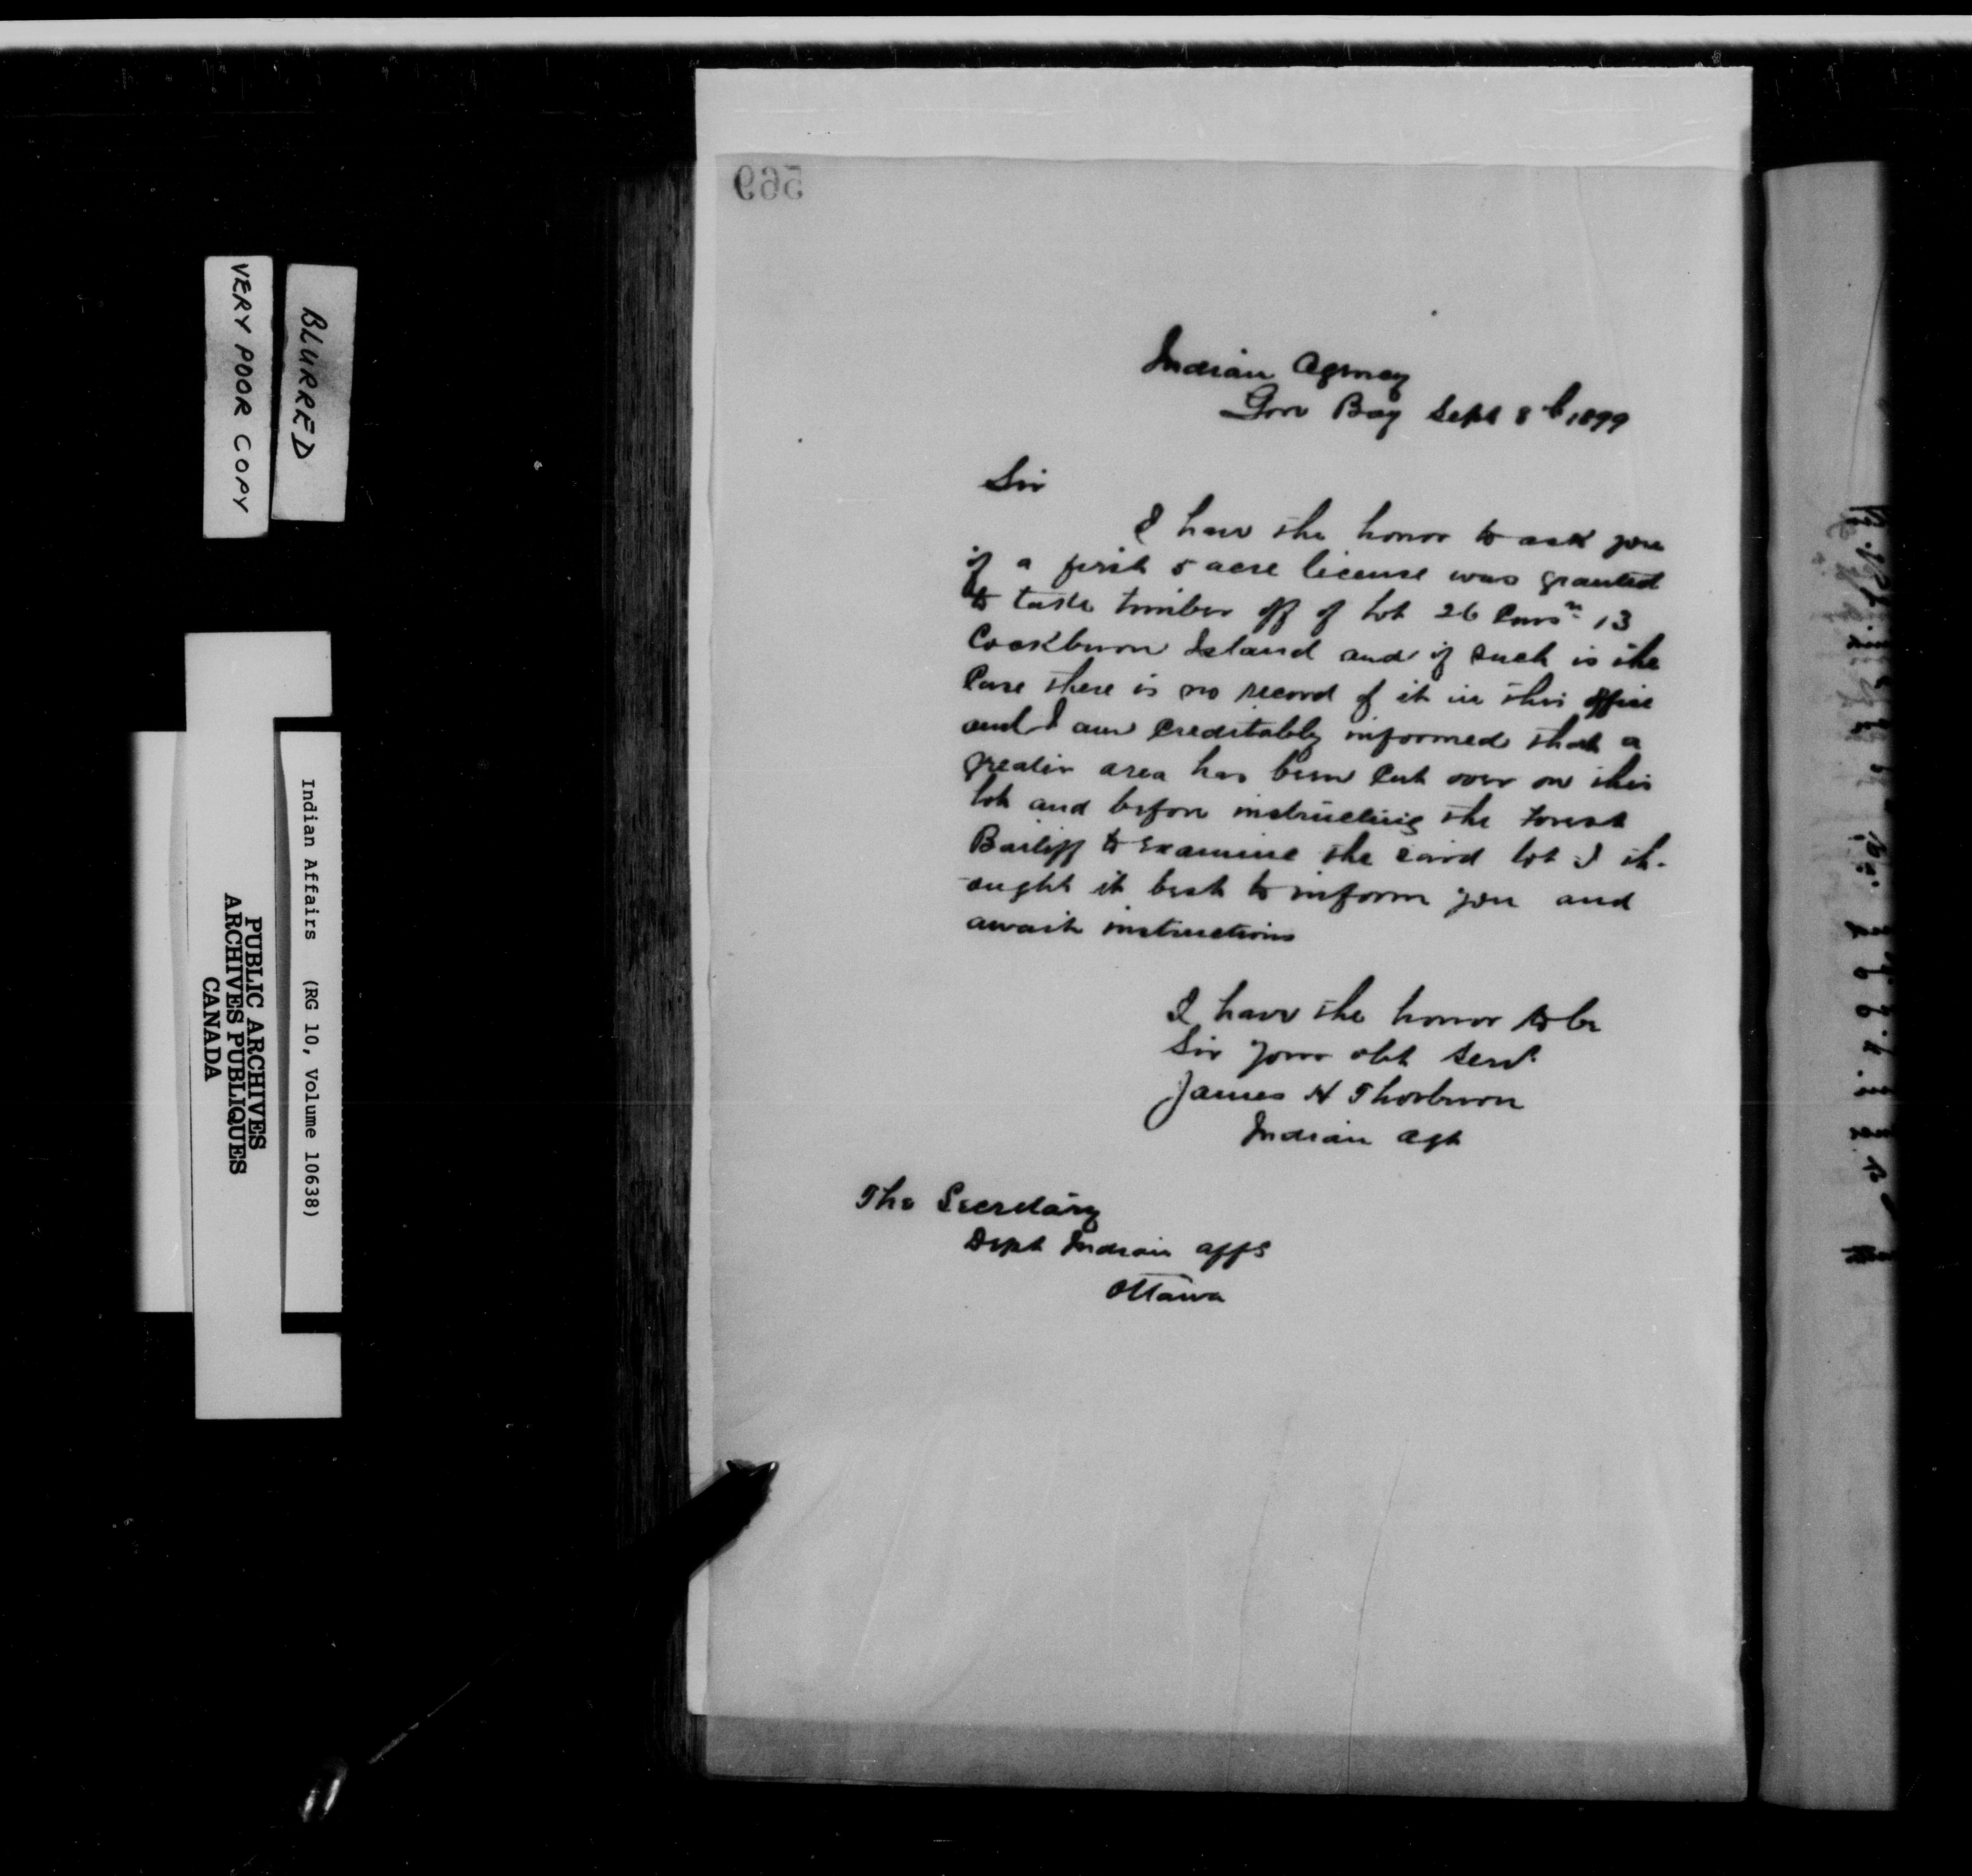 569
Indian Agency
Gore Bay Sept 8th 1899
Sir
I have the honor to ask you
if a first 5 acre license was granted
to take timber off of Lot 26 Consn 13
Cockburn Island and if such is the
Case there is no record of it in this office
and I am Creditably informed that a
greater area has been Cut over on this
lot and before instructing the Forest
Bailiff to examine the said lot I th-
ought it best to inform you and
await instructions
I have the honor to be
Sir your obt Servt
James H Thorburn
Indian Agt
The Secretary
Dept Indian Affs
Ottawa
VERY POOR COPY
BLURRED
Indian Affairs (RG 10, Volume 10638)
PUBLIC ARCHIVES
ARCHIVES PUBLIQUES
CANADA